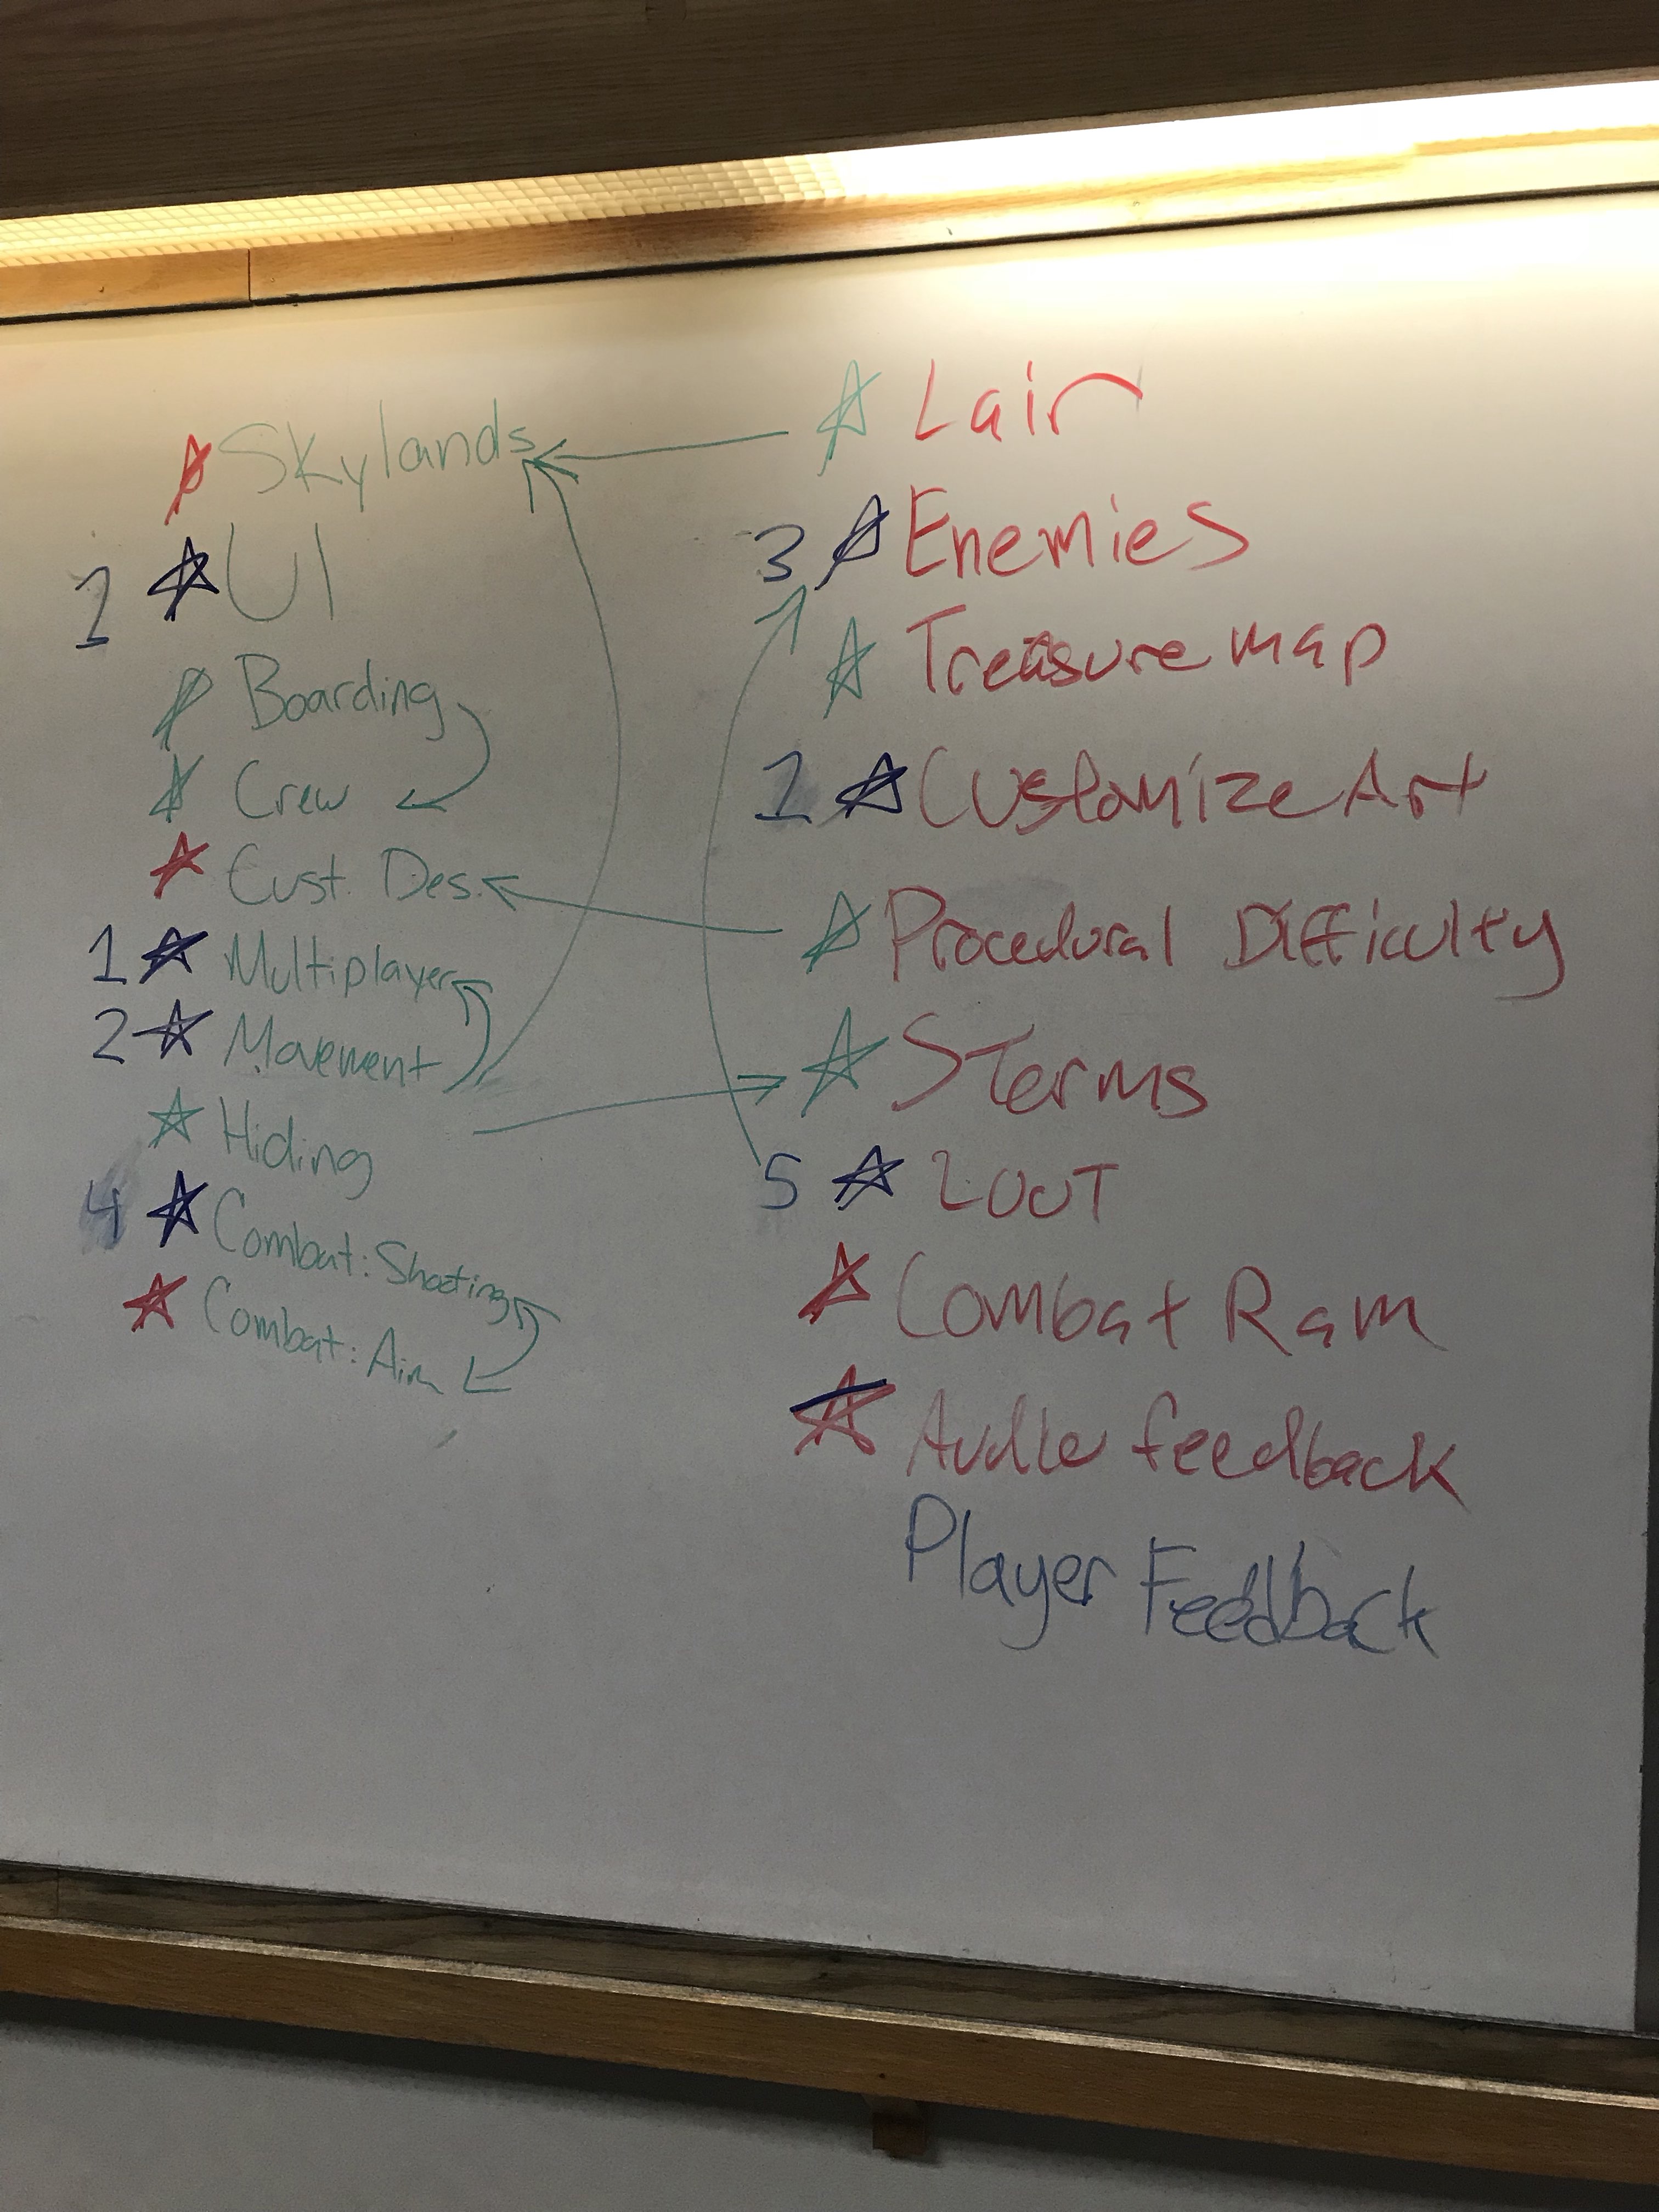 Skylands
1 UI
Boarding
Crew
Cust. Des.
1 Multiplayer
2 Movement
Hiding
4 Combat: Shooting
Combat: Aim
Lair
3 Enemies
Treasure map
1 Customize Art
Procedural Difficulty
Storms
5 LOOT
Combat Ram
Audio feedback
Player Feedback